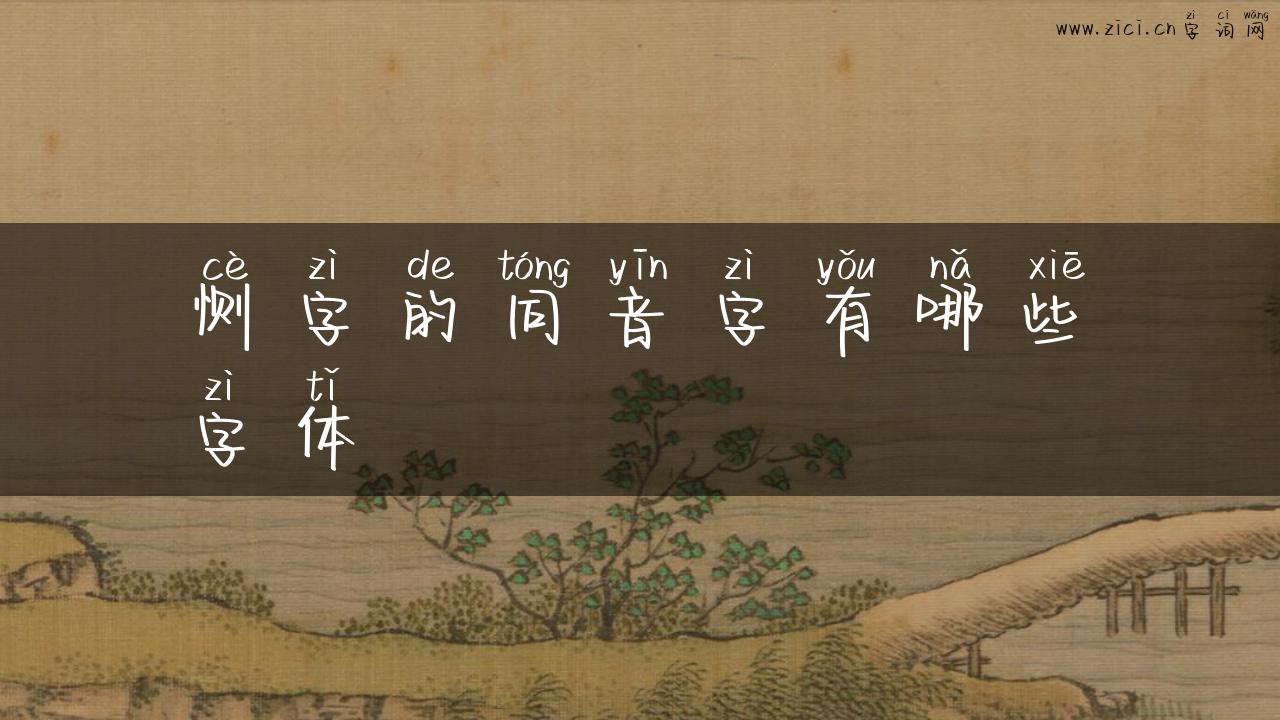 zì cí wǎng
www.zici.cn字词网
cè zì de tóng yīn zì yǒu nǎ xiē
恻字的同音字有哪些
zì tǐ
字体